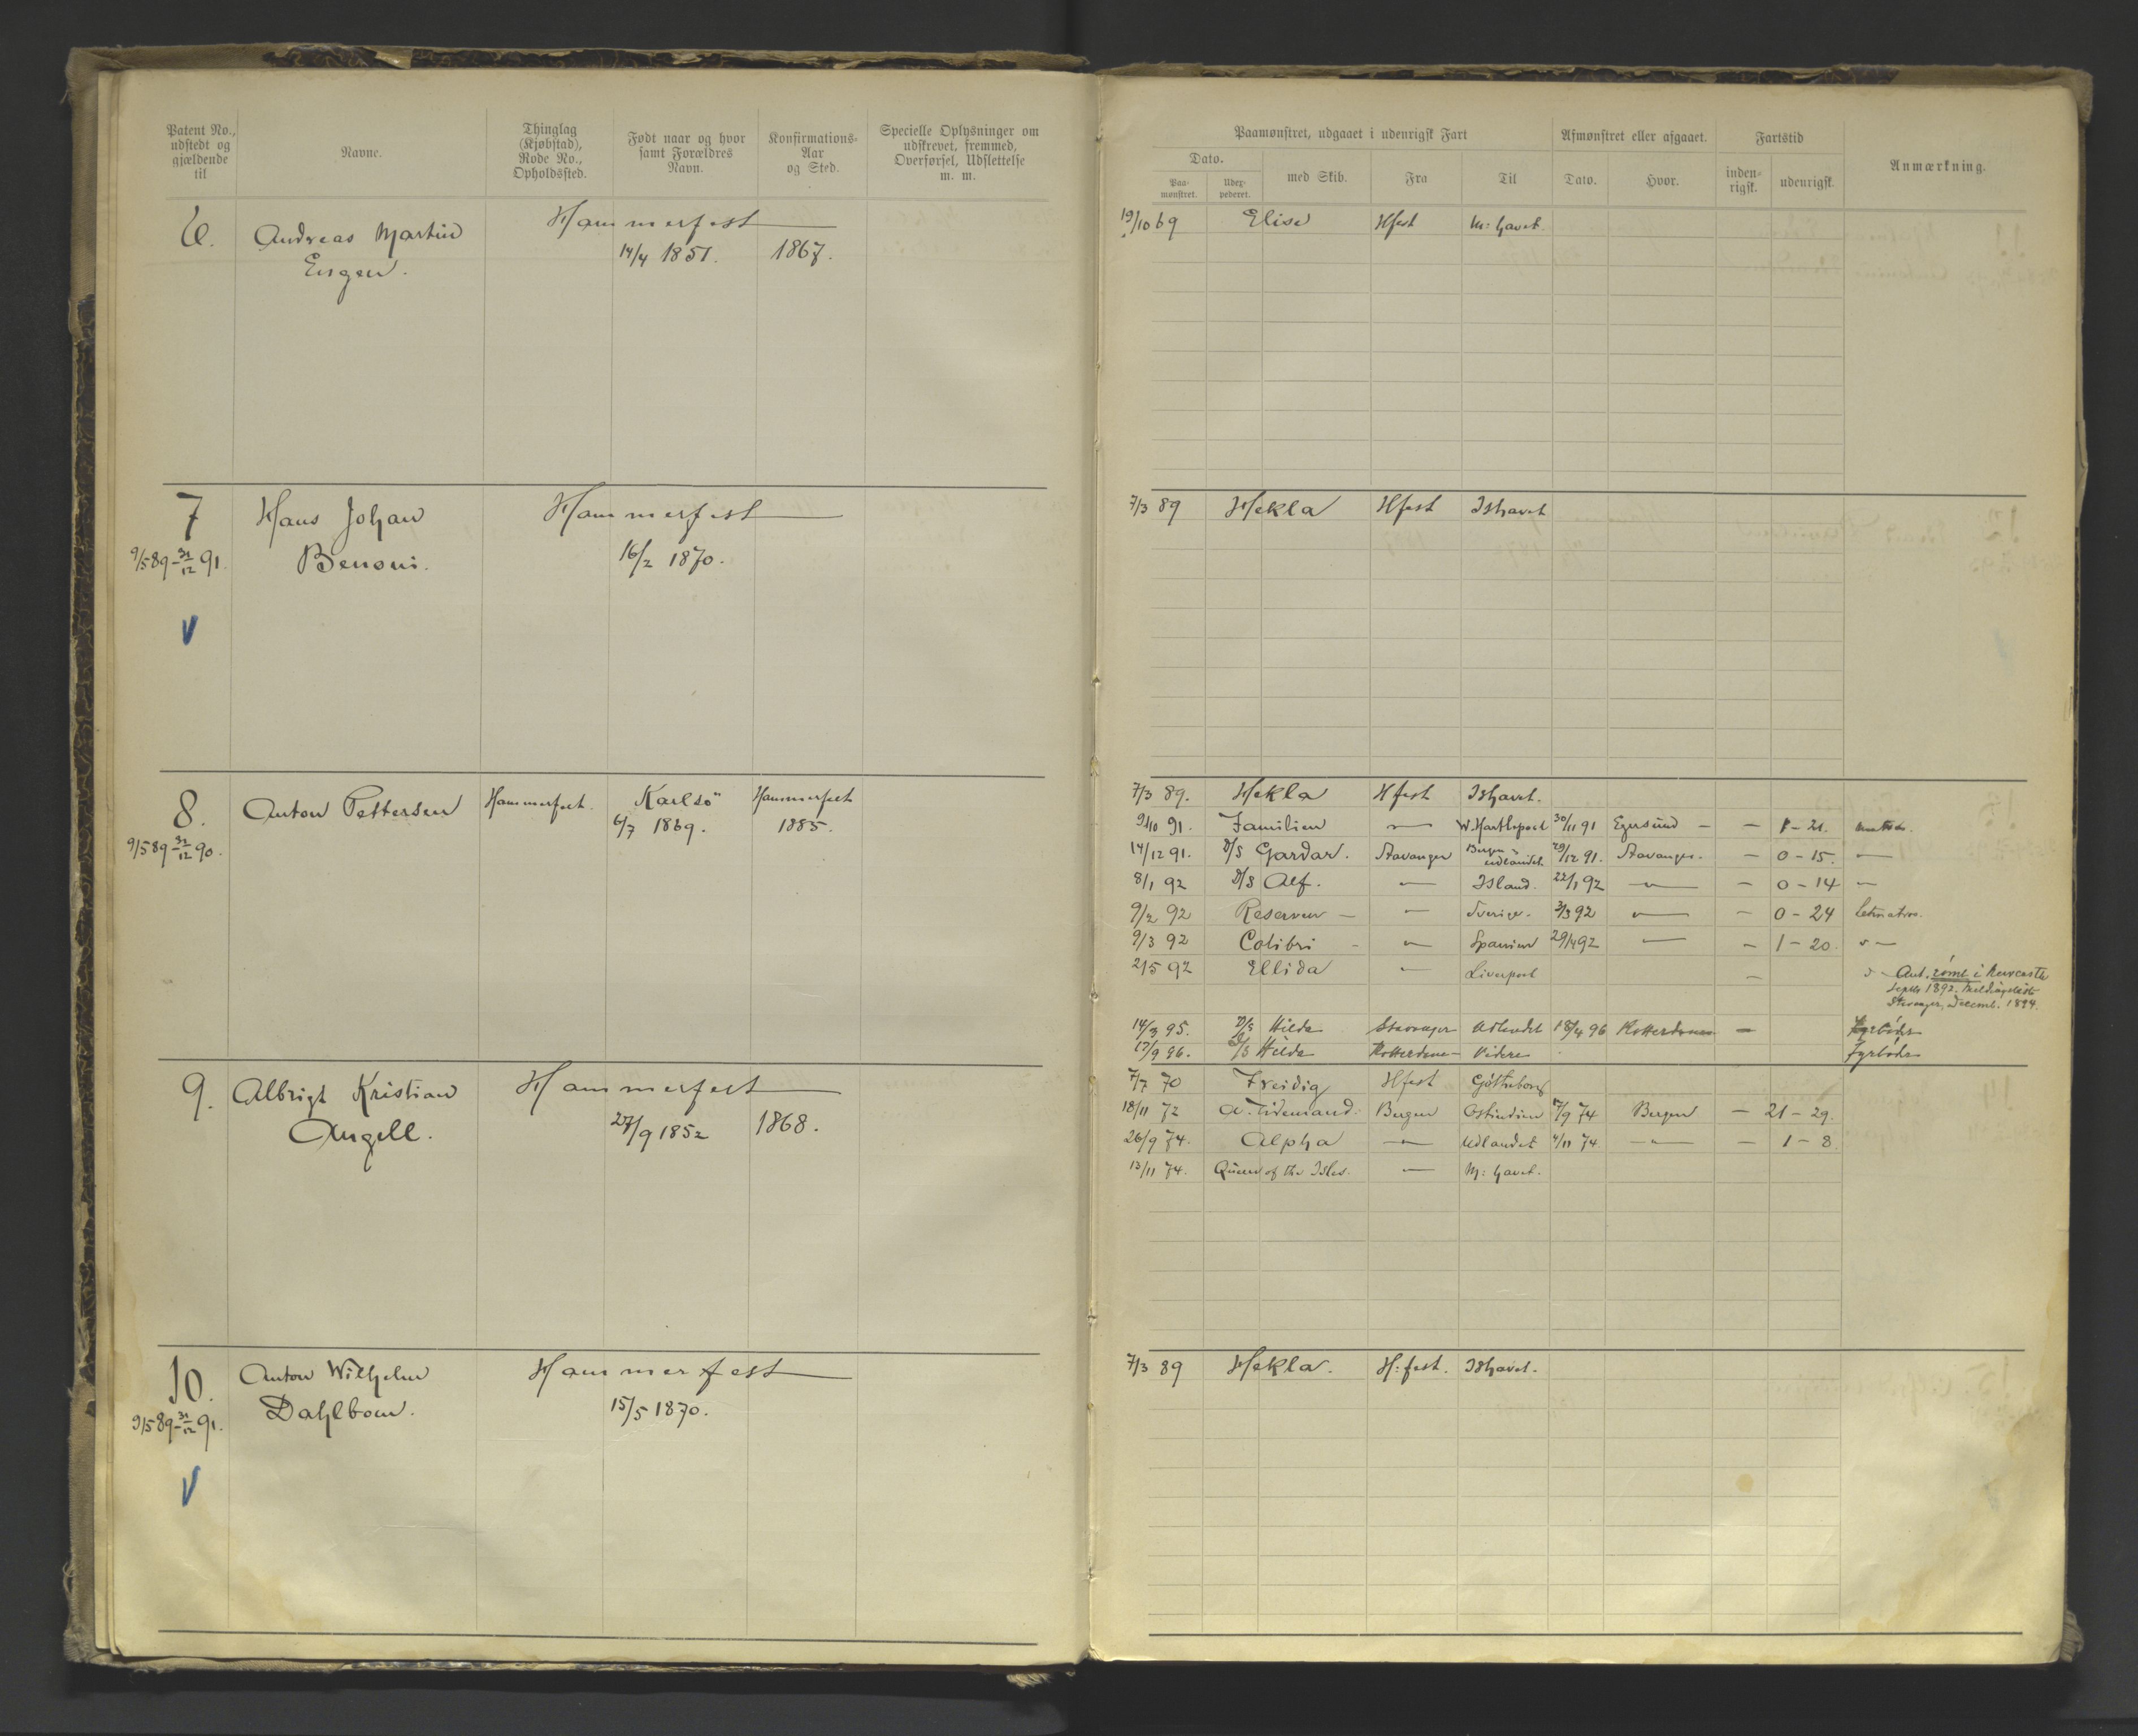 Patent No., udstedt og gjældende til
Navne.
Thinglag (Kjøbstad), Rode No., Opholdssted.
Født naar og hvor samt Forældres Navn.
Konfirmations-Aar og Sted.
Specielle Oplysninger om udskrevet, fremmed, Overførsel, Udslettelse m. m.
6. Andreas Martin Hammerfest
Engen. 14/4 1851. 1867.
7 Hans Johan Hammerfest
9/5 89 - 31/12 91. Benoni. 16/2 1870.
V
8. Anton Pettersen Hammerfest. Karlsö Hammerfest
9/5 89 - 31/12 90. 6/7 1869. 1885.
9. Albrigt Kristian Hammerfest
Angell. 27/9 1852 1868.
10. Anton Wilhelm Hammerfest
9/5 89 - 31/12 91. Dahlbom. 15/5 1870.
V
Paamønstret, udgaaet i udenrigsk Fart
Afmønstret eller afgaaet.
Fartstid
Anmærkning.
Dato.
Paa-mønstret.
Udex-pederet.
med Skib.
Fra
Til
Dato.
Hvor.
inden-rigsk.
udenrigsk.
19/10 69 Elise Hfest M: havet.
7/3 89 Hekla Hfest Ishavet
7/3 89. Hekla Hfest Ishavet.
9/10 91. Familien — W. Hartlepool 30/11 91 Egersund - - 1 - 21. matros.
14/12 91. D/S Gardar. Stavanger Bergen & udlandet. 29/12 91. Stavanger. - 0 - 15. —
8/1 92 D/S Alf. — Island. 22/1 92 — - 0 - 14 —
9/2 92 Reserven - — Sverige. 3/3 92 — - 0 - 24 Letmatros.
9/3 92 Colibri - — Spanien 29/4 92 — - 1 - 20. —
2/5 92 Ellida — Liverpool - Ant. römt i Newcastle
Septbr 1892. Meldingsliste
Stavanger, Decemb. 1894.
14/3 95. D/S Hilda Stavanger Udlandet 18/4 96 Rotterdam -
17/9 96. D/S Hilda Rotterdam - Videre Fyrböder
7/7 70 Freidig Hfest Götheborg
18/11 72 A. Tidemand. Bergen Ostindien 9/9 74 Bergen - 21 - 29.
26/9 74. Alpha — Udlandet 4/11 74. — - 1 - 8
13/11 74. Queen of the Isles. — M: havet.
7/3 89 Hekla. H: fest. Ishavet.